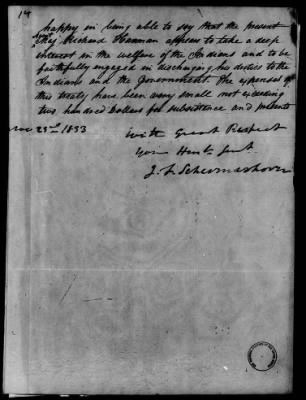 14
happy in being able to say that the present
Richard Hannon appears to take a deep
interest in the welfare of the Indians and to be
faithfully engaged in discharging his duties to the
Indians and the Government. The expenses of
this treaty have been very small not exceeding
two hundred Dollars for subsistence and presents
23rd 1833
With Great Respect
Your Humb Servt
J. F. Schermerhorn